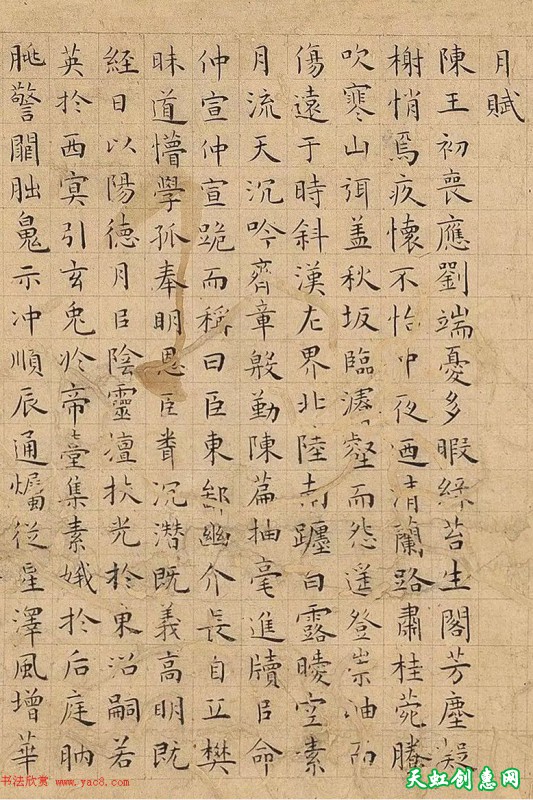 月賦
陳王初喪應劉端憂多暇綠苔生閣芳塵凝
榭悄焉疚懷不怡中夜迺清蘭路肅桂菀騰
吹寒山弭盖秋坂臨濬壑而怨遥登崇岫而
傷遠于時斜漢左界北陸南躔白露曖空素
月流天沉吟齊章殷勤陳篇抽毫進牘以命
仲宣仲宣跪而稱曰臣東鄙幽介長自丘樊
昧道懵學孤奉明恩臣聞沉潛既義高明既
經日以陽德月以陰靈擅扶光於東沼嗣若
英於西冥引玄兔於帝臺集素娥於后庭朒
朓警闕朏魄示冲順辰通燭從星澤風增華
书法欣赏 www.yac8.com
天虹创惠网